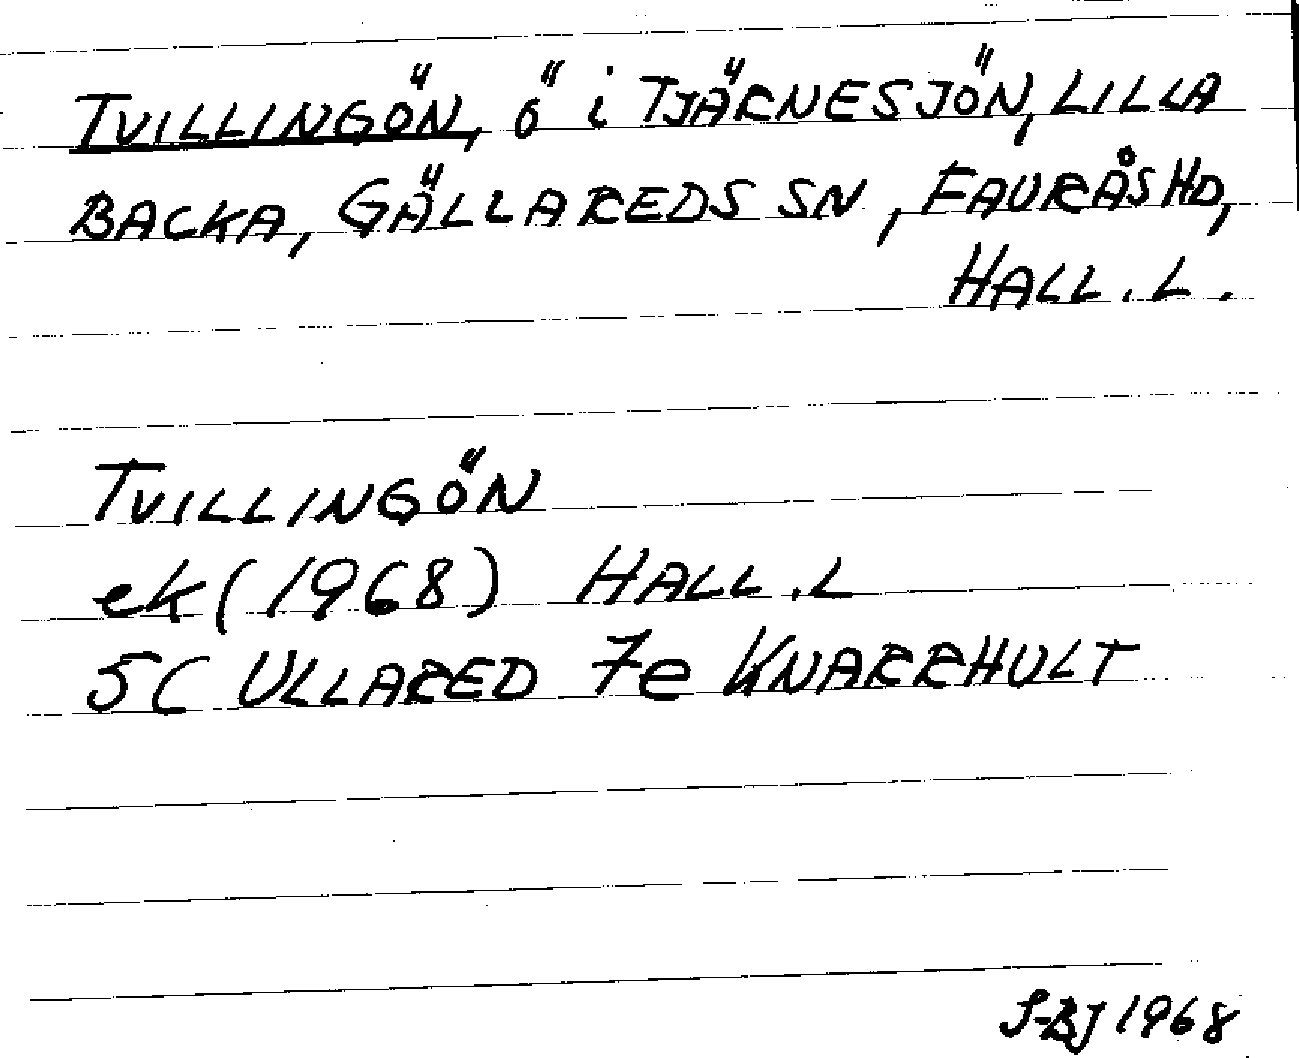 TVILLINGÖN, ö i TJÄRNESJÖN, LILLA
BACKA, GÄLLAREDS SN, FAURÅS HD,
HALL. L.
TVILLINGÖN
ek (1968) HALL. L
5C ULLARED 7e KNARRHULT
S-BJ 1968